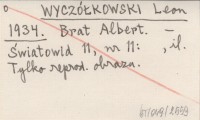 WYCZÓŁKOWSKI Leon
1934. Brat Albert. —
Światowid 11, nr 11: , il.
Tylko reprod. obrazu.